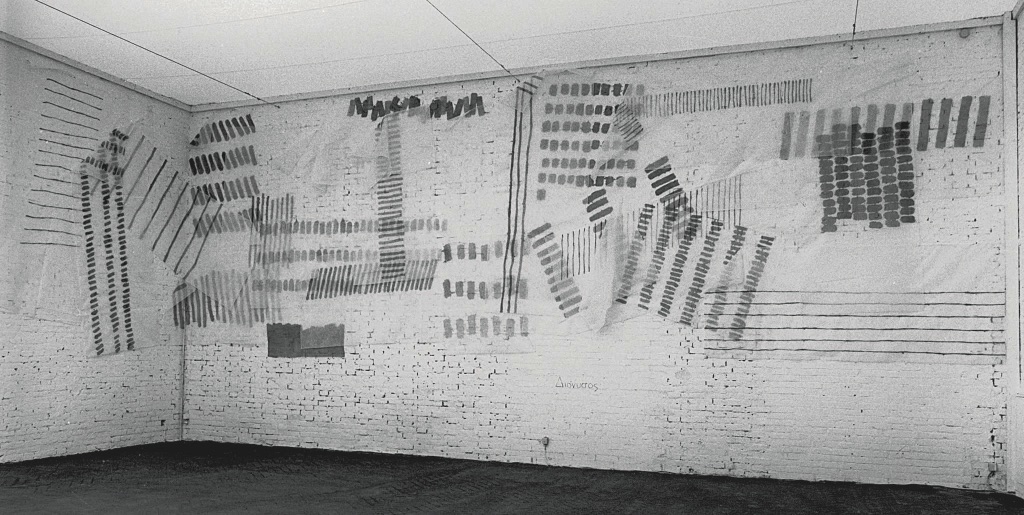 Διόνυσος